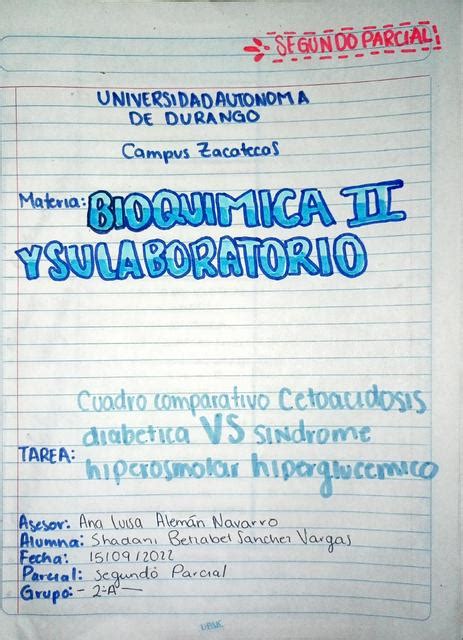 SEGUNDO PARCIAL!
UNIVERSIDAD AUTONOMA
DE DURANGO
Campus Zacatecas
Materia: BIOQUIMICA II
Y SU LABORATORIO
Cuadro comparativo Cetoacidosis
diabetica VS sindrome
TAREA: hiperosmolar hiperglucemico
Asesor: Ana Luisa Alemán Navarro
Alumna: Shadani Betzabel Sanchez Vargas
Fecha: 15/09/2022
Parcial: Segundo Parcial
Grupo: - 2-A -